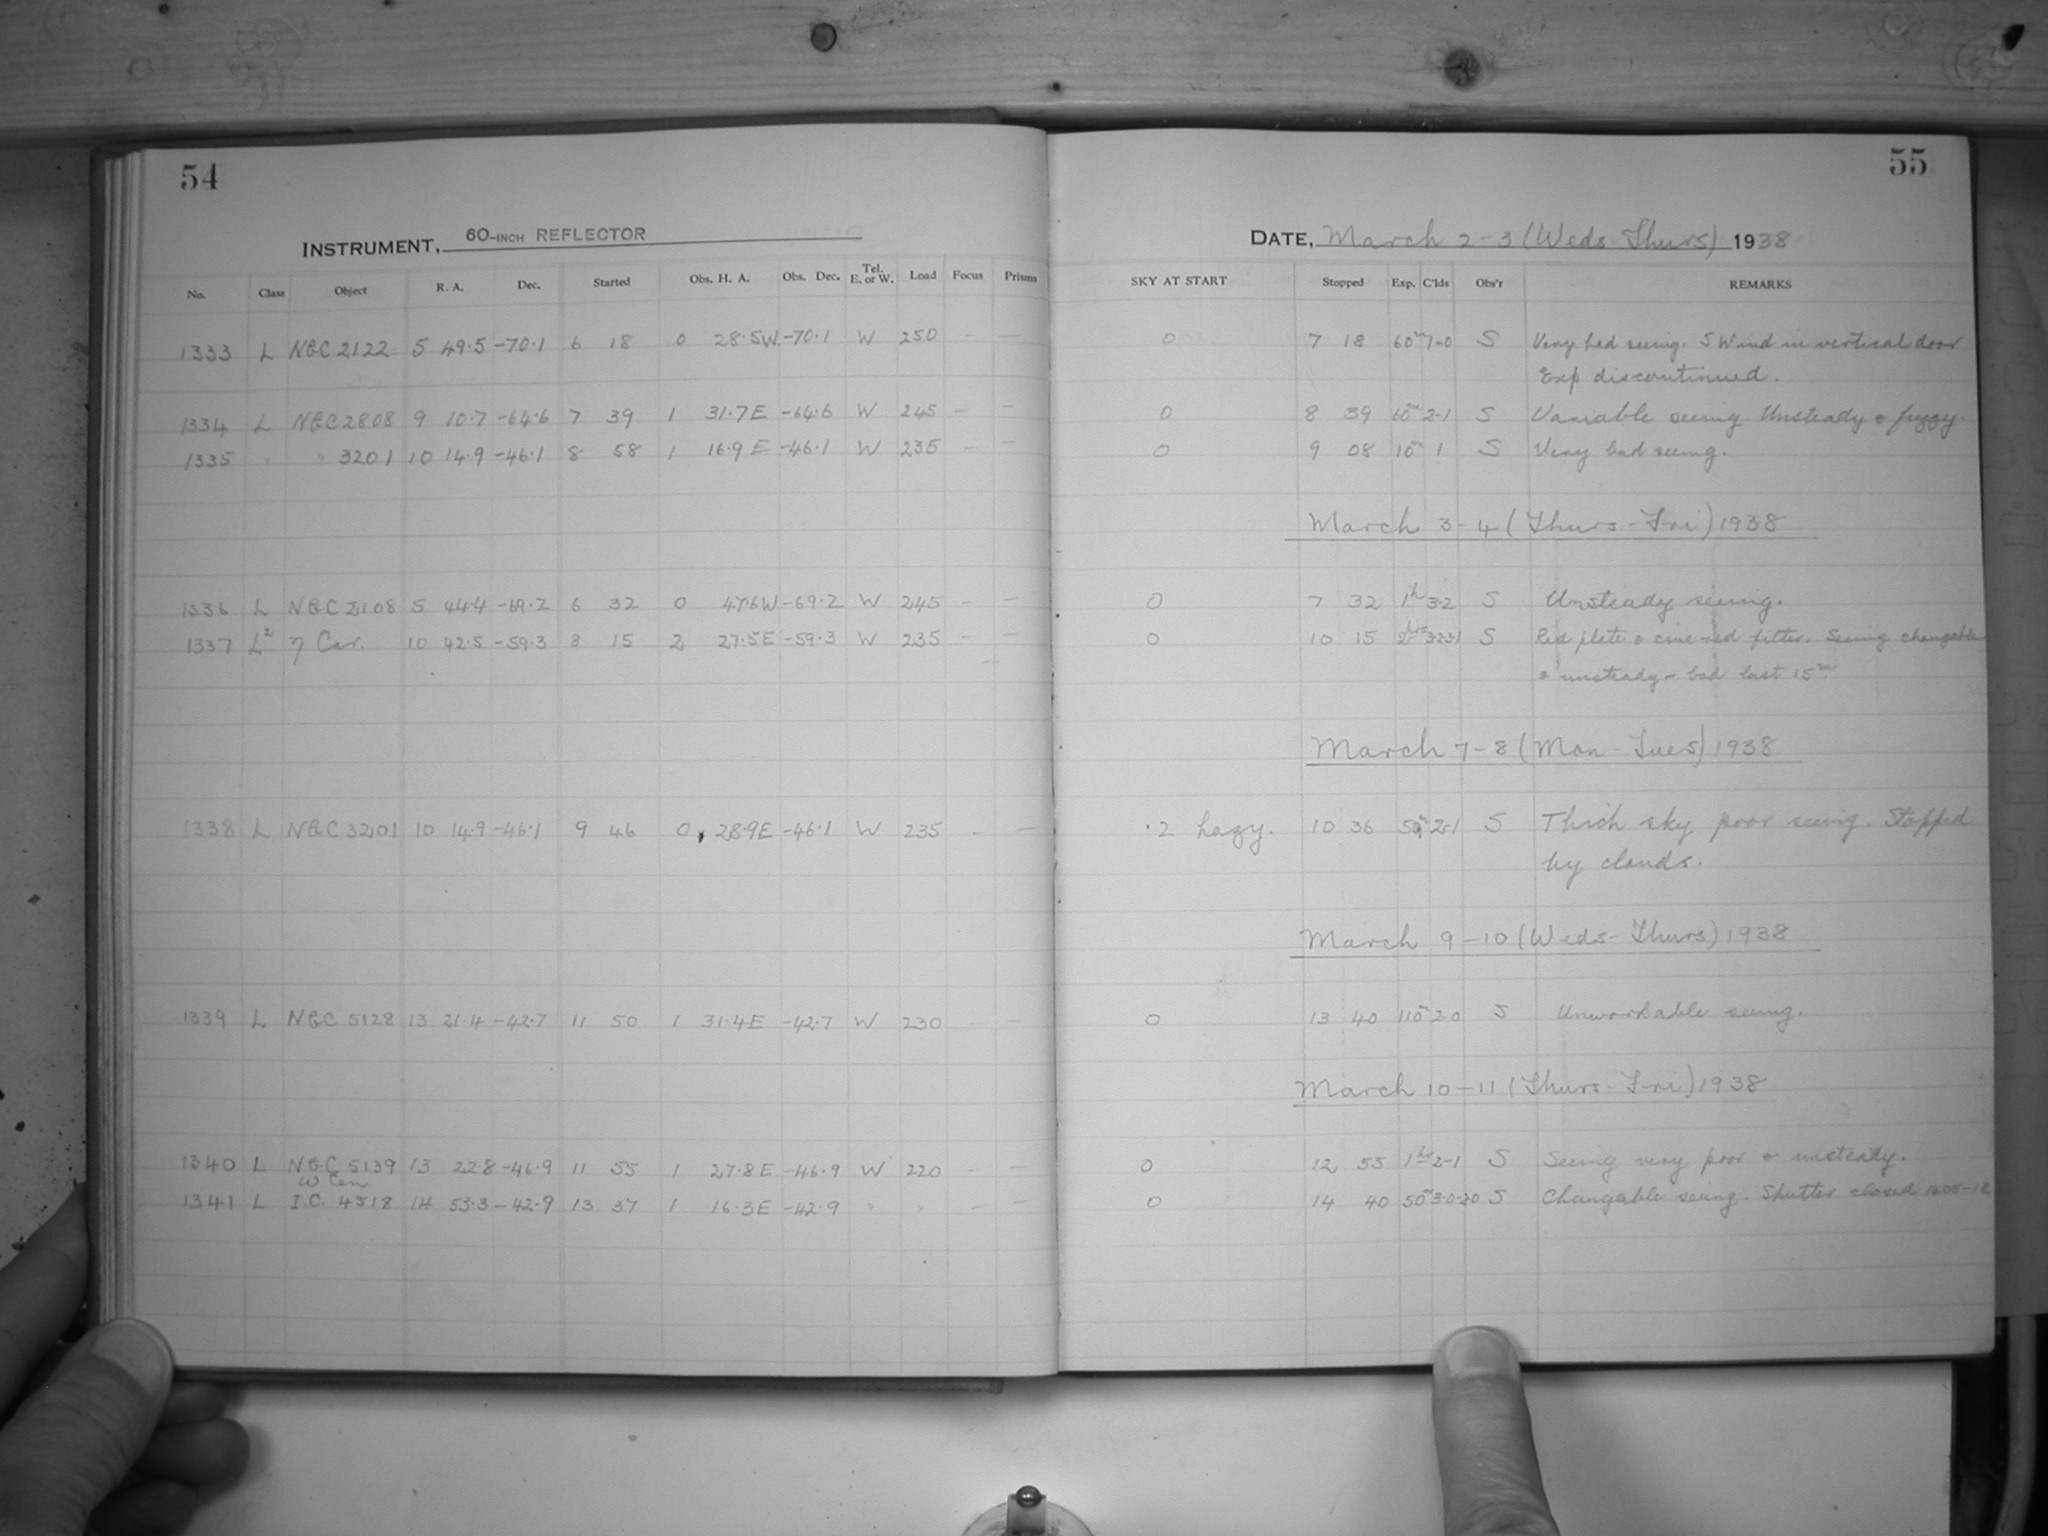 54
INSTRUMENT, 60-INCH REFLECTOR
No. Class Object R. A. Dec. Started Obs. H. A. Obs. Dec. Tel. E. or W. Load Focus Prisms
1333 L NGC 2122 5 49.5 -70.1 6 18 0 28.5W -70.1 W 250 — —
1334 L NGC 2808 9 10.7 -64.6 7 39 1 31.7E -64.6 W 245 — —
1335 " " 3201 10 14.9 -46.1 8 58 1 16.9E -46.1 W 235 —
1336 L NGC 2108 5 44.4 -69.2 6 32 0 47.6W -69.2 W 245 — —
1337 L² η Car. 10 42.5 -59.3 8 15 2 27.5E -59.3 W 235 — —
1338 L NGC 3201 10 14.9 -46.1 9 46 0 28.9E -46.1 W 235 — —
1339 L NGC 5128 13 21.4 -42.7 11 50 1 31.4E -42.7 W 230 — —
1340 L NGC 5139 13 22.8 -46.9 11 55 1 27.8E -46.9 W 220 — —
ω Cen
1341 L I.C. 4518 14 53.3 -42.9 13 37 1 16.3E -42.9 " " — —
55
DATE, March 2-3 (Weds-Thurs) 1938
SKY AT START Stopped Exp. C'lds Obs'r REMARKS
0 7 18 60m 7-0 S Very bad seeing. S Wind in vertical door
Exp discontinued.
0 8 39 60m 2-1 S Variable seeing. Unsteady & fuzzy.
0 9 08 10m 1 S Very bad seeing.
March 3-4 (Thurs-Fri) 1938
0 7 32 1h 3-2 S Unsteady seeing.
0 10 15 2hrs S Red plate & cine red filter. Seeing changable
& unsteady - bad last 15m.
March 7-8 (Mon-Tues) 1938
.2 hazy. 10 36 50m 2-1 S Thick sky poor seeing. Stopped
by clouds.
March 9-10 (Weds-Thurs) 1938
0 13 40 110m 2-0 S Unworkable seeing.
March 10-11 (Thurs-Fri) 1938
0 12 55 1hr 2-1 S Seeing very poor & unsteady.
0 14 40 50m S Changable seeing. Shutter closed